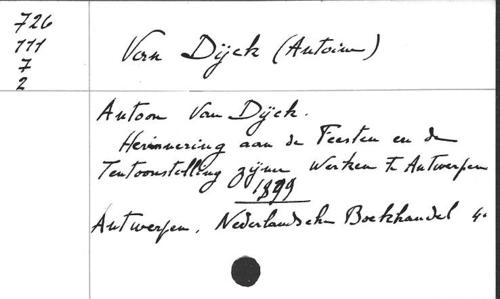 726
111
7
2
Van Dijck (Antoine)
Antoon Van Dijck.
Herinnering aan de Feesten en de
Tentoonstelling zijner Werken te Antwerpen
1899
Antwerpen, Nederlandsche Boekhandel 4°